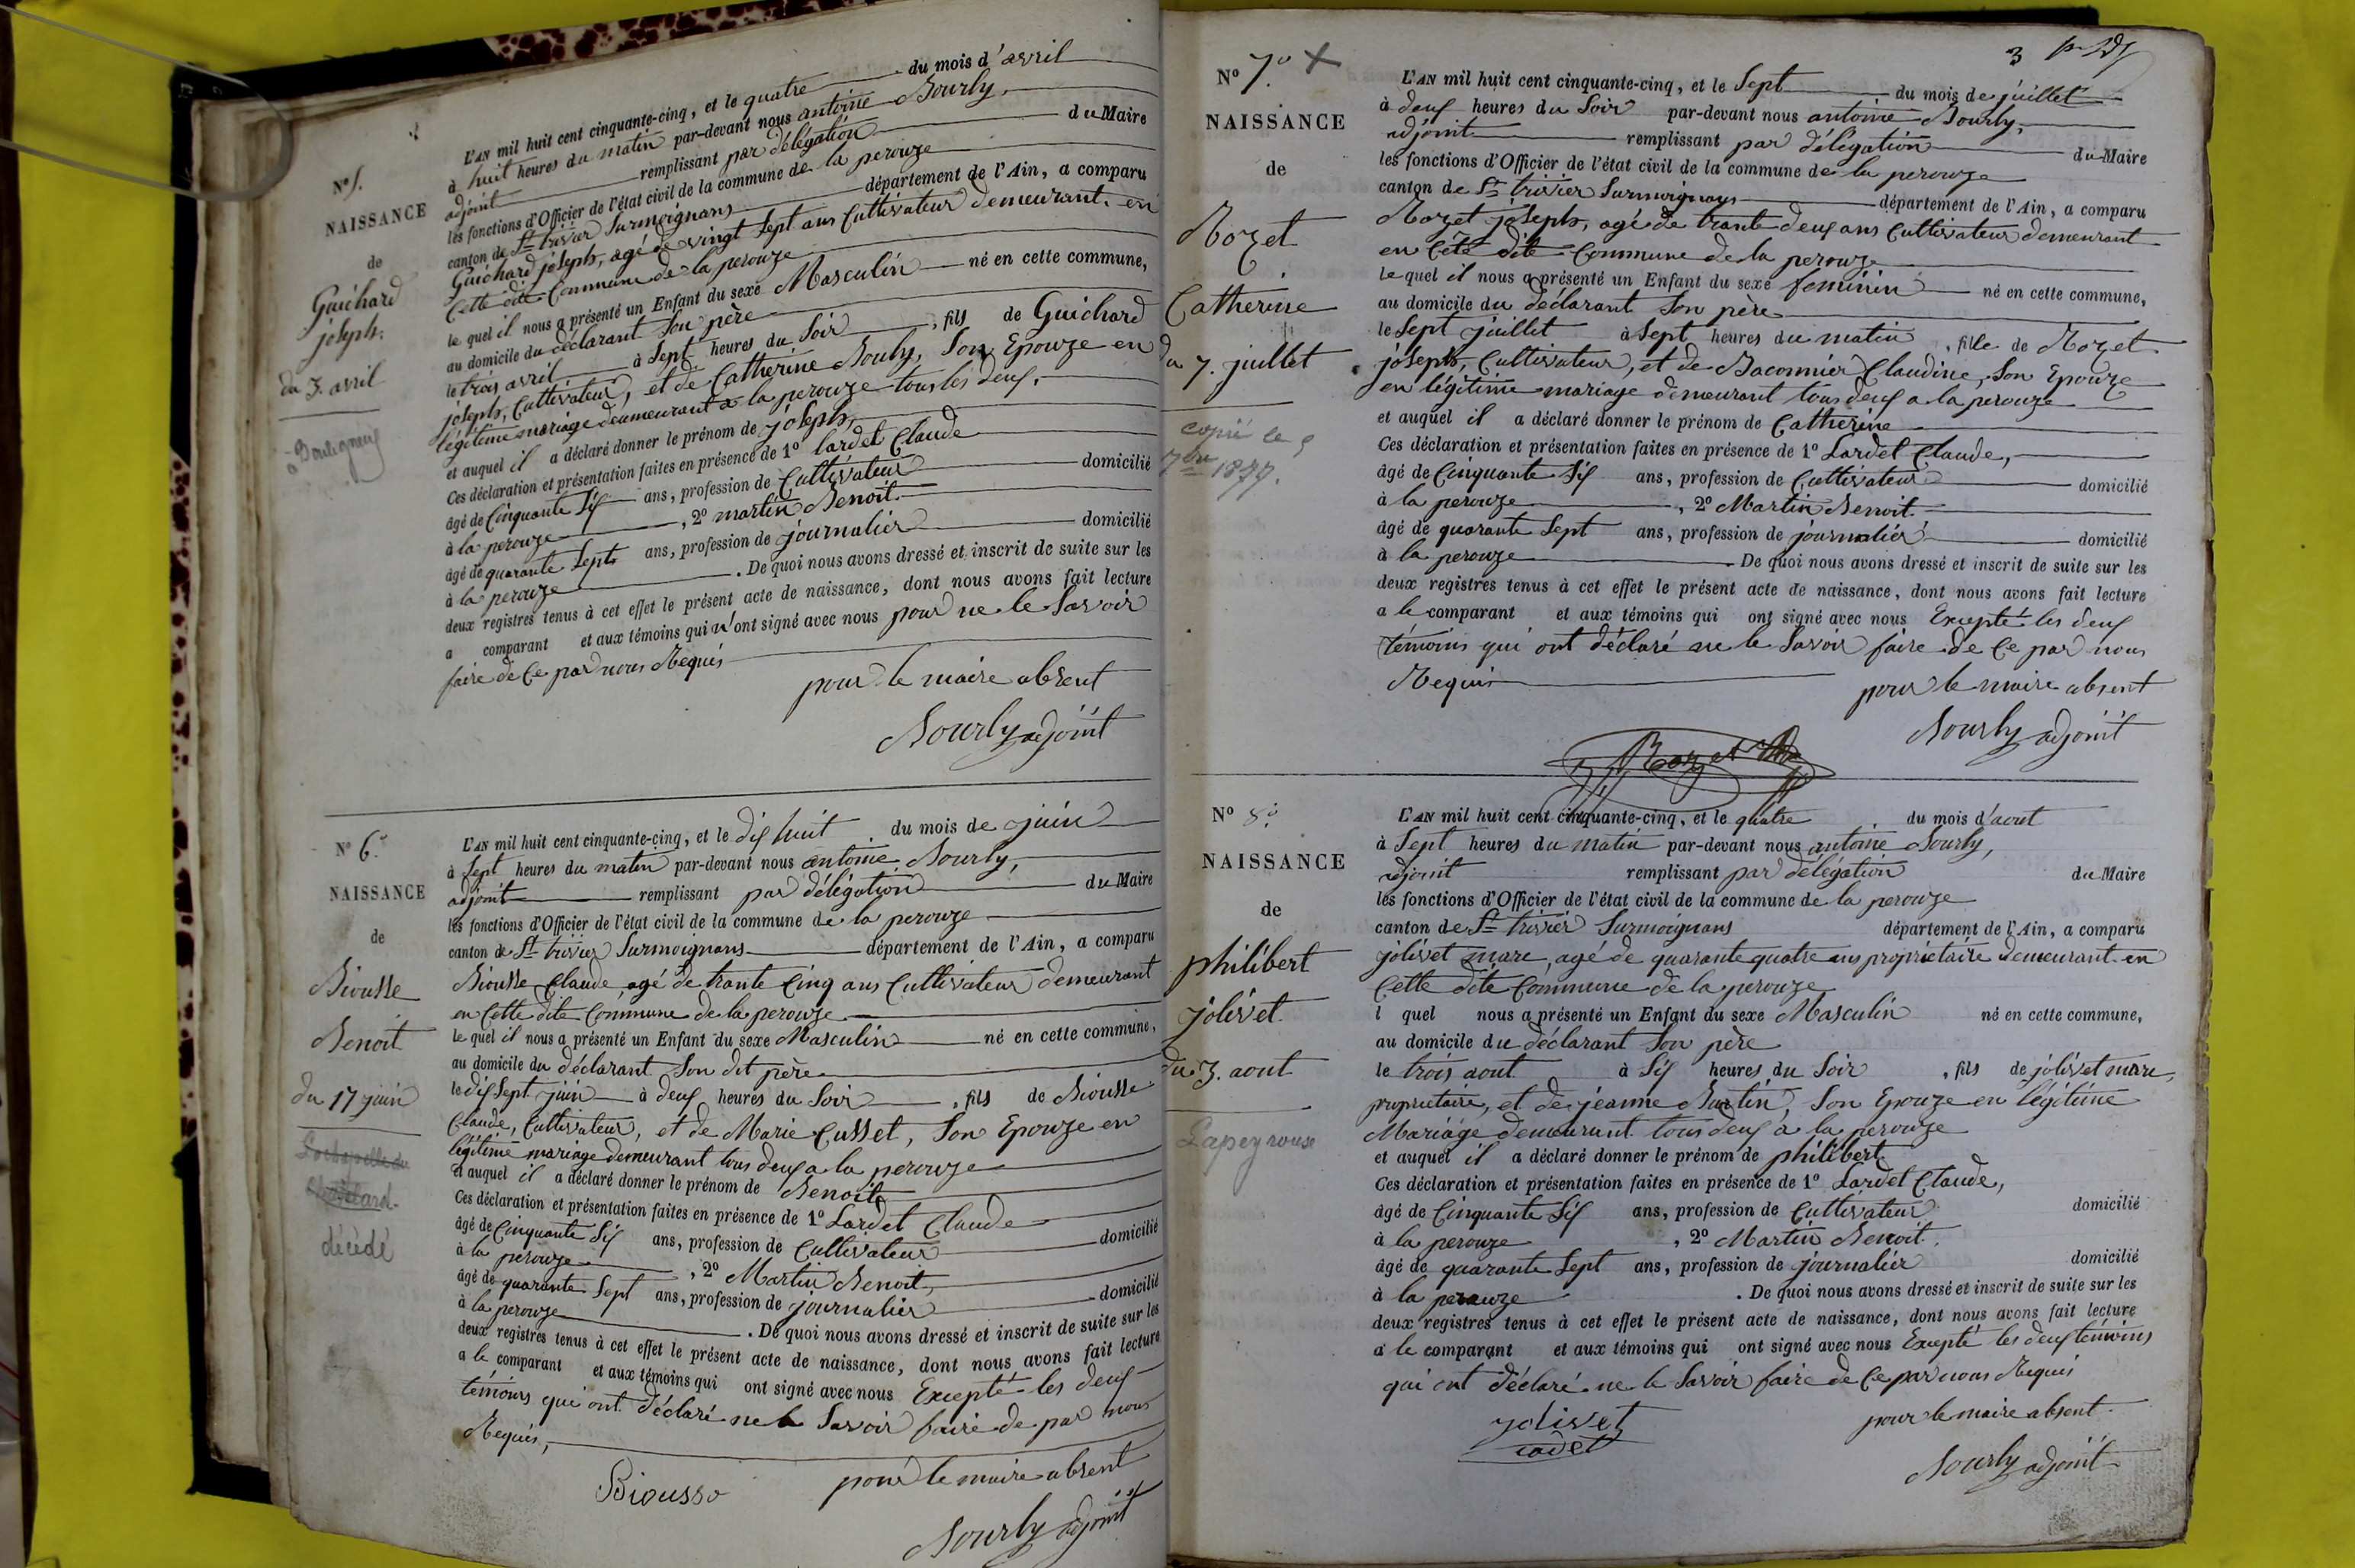 N° 5.
NAISSANCE
de
Guichard
joseph.
du 3. avril
L'AN mil huit cent cinquante-cinq, et le quatre du mois d'avril
à huit heures du matin par-devant nous antoine Bourly,
adjoint remplissant par délégation du Maire
les fonctions d'Officier de l'état civil de la commune de la perouze
canton de St trivier Surmoignans département de l'Ain, a comparu
Guichard joseph, agé de vingt Sept ans Cultivateur demeurant en
Cette dite Commune de la perouze
le quel il nous a présenté un Enfant du sexe Masculin né en cette commune,
au domicile du déclarant Son père
le trois avril à Sept heures du Soir, fils de Guichard
joseph, Cultivateur, et de Catherine Bouby, Son Epouze en
légitime mariage demeurant a la perouze tous les deux.
et auquel il a déclaré donner le prénom de joseph,
Ces déclaration et présentation faites en présence de 1° Lardet Claude
âgé de Cinquante Six ans, profession de Cultivateur domicilié
à la perouze, 2° martin Benoit.
âgé de quarante Sept ans, profession de journalier domicilié
à la perouze. De quoi nous avons dressé et inscrit de suite sur les
deux registres tenus à cet effet le présent acte de naissance, dont nous avons fait lecture
a comparant et aux témoins qui n'ont signé avec nous pour ne le Savoir
faire de Ce par nous Requis
pour le maire absent
Bourly adjoint
N° 6.
NAISSANCE
de
Biousse
Benoit
du 17 juin
décédé
L'AN mil huit cent cinquante-cinq, et le dix huit du mois de juin
à Sept heures du matin par-devant nous antoine Bourly,
adjoint remplissant par délégation du Maire
les fonctions d'Officier de l'état civil de la commune de la perouze
canton de St trivier Surmoignans département de l'Ain, a comparu
Biousse Claude agé de trante Cinq ans Cultivateur demeurant
en Cette dite Commune de la perouze
le quel il nous a présenté un Enfant du sexe Masculin né en cette commune,
au domicile du déclarant Son dit père
le dix Sept juin à deux heures du Soir, fils de Biousse
Claude, Cultivateur, et de Marie Cusset, Son Epouze en
légitime mariage demeurant tous deux a la perouze
et auquel il a déclaré donner le prénom de Benoit
Ces déclaration et présentation faites en présence de 1° Lardet Claude
âgé de Cinquante Six ans, profession de Cultivateur domicilié
à la perouze, 2° Martin Benoit,
âgé de quarante Sept ans, profession de journalier domicilié
à la perouze. De quoi nous avons dressé et inscrit de suite sur les
deux registres tenus à cet effet le présent acte de naissance, dont nous avons fait lecture
a le comparant et aux témoins qui ont signé avec nous Excepté les deux
témoins qui ont déclaré ne le Savoir faire de par nous
Requis,
Biousse
pour le maire absent
Bourly adjoint
3
N° 7.
NAISSANCE
de
Rozet
Catherine
du 7. juillet
copié le 5
7bre 1877.
L'AN mil huit cent cinquante-cinq, et le Sept du mois de juillet
à deux heures du Soir par-devant nous antoine Bourly,
adjoint remplissant par délégation du Maire
les fonctions d'Officier de l'état civil de la commune de la perouze
canton de St trivier Surmoignans département de l'Ain, a comparu
Rozet joseph, agé de trante deux ans Cultivateur demeurant
en Cête dite Commune de la perouze
le quel il nous a présenté un Enfant du sexe feminin né en cette commune,
au domicile du déclarant Son père
le Sept juillet à Sept heures du matin, fille de Rozet
joseph, Cultivateur, et de Baconnier Claudine, Son Epouze
en légitime mariage demeurant tous deux a la perouze
et auquel il a déclaré donner le prénom de Catherine
Ces déclaration et présentation faites en présence de 1° Lardet Claude,
âgé de Cinquante Six ans, profession de Cultivateur domicilié
à la perouze, 2° Martin Benoit.
âgé de quarante Sept ans, profession de journalier domicilié
à la perouze. De quoi nous avons dressé et inscrit de suite sur les
deux registres tenus à cet effet le présent acte de naissance, dont nous avons fait lecture
a le comparant et aux témoins qui ont signé avec nous Excepté les deux
témoins qui ont déclaré ne le Savoir faire de Ce par nous
Requis
pour le maire absent
Bourly adjoint
Rozet
N° 8.
NAISSANCE
de
philibert
jolivet.
du 3. aout
Lapeyrouse
L'AN mil huit cent cinquante-cinq, et le quatre du mois d'aout
à Sept heures du matin par-devant nous antoine Bourly,
adjoint remplissant par délégation du Maire
les fonctions d'Officier de l'état civil de la commune de la perouze
canton de St trivier Surmoignans département de l'Ain, a comparu
jolivet marc, agé de quarante quatre ans propriétaire demeurant en
Cette dite Commune de la perouze
l quel nous a présenté un Enfant du sexe Masculin né en cette commune,
au domicile du déclarant Son père
le trois aout à Six heures du Soir, fils de jolivet marc,
proprietaire, et de jeanne Martin, Son Epouze en légitime
Mariage demeurant tous deux a la perouze
et auquel il a déclaré donner le prénom de philibert.
Ces déclaration et présentation faites en présence de 1° Lardet Claude,
âgé de Cinquante Six ans, profession de Cultivateur domicilié
à la perouze, 2° Martin Benoit.
âgé de quarante Sept ans, profession de journalier domicilié
à la perouze. De quoi nous avons dressé et inscrit de suite sur les
deux registres tenus à cet effet le présent acte de naissance, dont nous avons fait lecture
a le comparant et aux témoins qui ont signé avec nous Excepté les deux témoins
qui ont déclaré ne le Savoir faire de Ce par nous Requis
jolivet
cadet
pour le maire absent.
Bourly adjoint